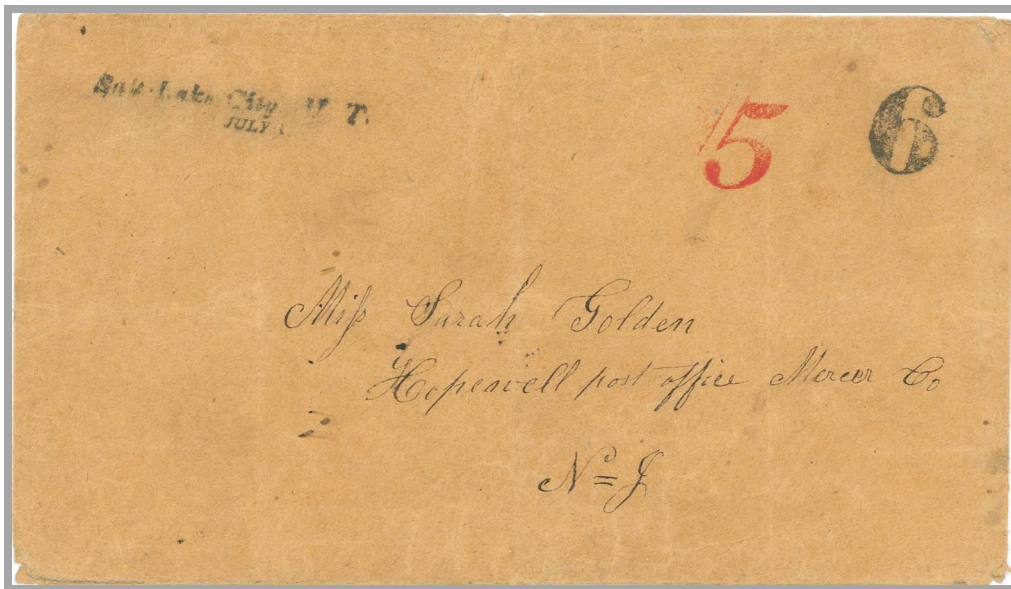 Salt Lake City, U. T.
JULY
5 6
Miss Sarah Golden
Hopewell post office Mercer Co
N = J